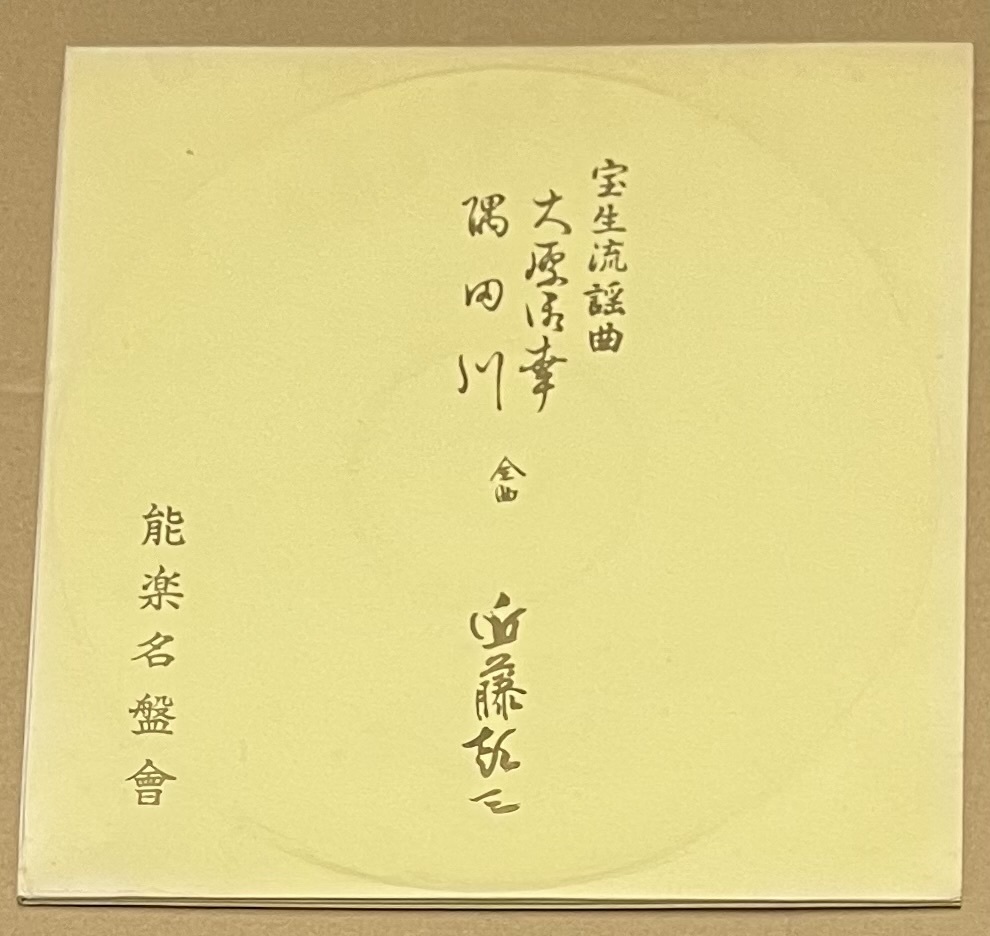 宝生流謡曲
大原御幸
隅田川
全曲
近藤乾三
能楽名盤會